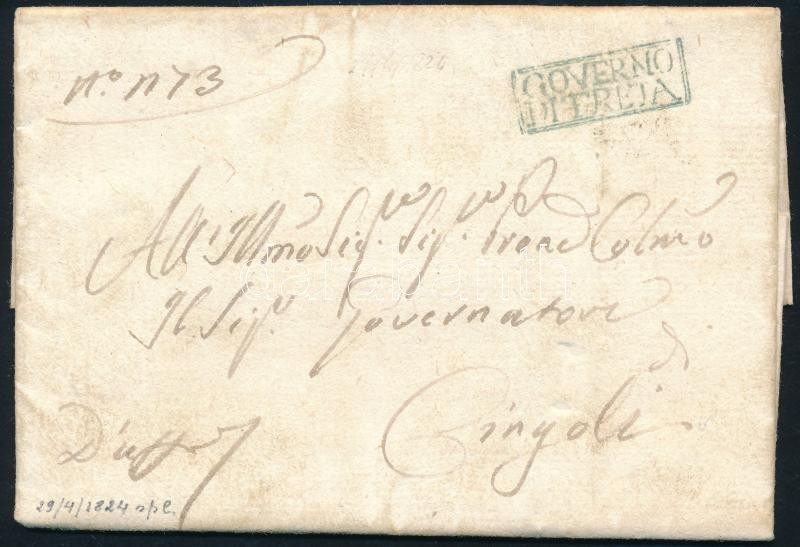 N.o 1173
GOVERNO
DI TREIA
All'Illmo Sig.r Sig.r Prone Colmo
Il Sig.r Governatore
di
Cingoli
D'uff
29/4/1824